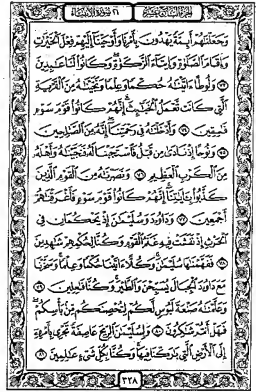 الجزء السابع عشر ٢١ سورة الأنبياء
وَجَعَلۡنَٰهُمۡ أَئِمَّةٗ يَهۡدُونَ بِأَمۡرِنَا وَأَوۡحَيۡنَآ إِلَيۡهِمۡ فِعۡلَ ٱلۡخَيۡرَٰتِ
وَإِقَامَ ٱلصَّلَوٰةِ وَإِيتَآءَ ٱلزَّكَوٰةِۖ وَكَانُواْ لَنَا عَٰبِدِينَ
٧٣ وَلُوطًا ءَاتَيۡنَٰهُ حُكۡمٗا وَعِلۡمٗا وَنَجَّيۡنَٰهُ مِنَ ٱلۡقَرۡيَةِ
ٱلَّتِي كَانَت تَّعۡمَلُ ٱلۡخَبَٰٓئِثَۚ إِنَّهُمۡ كَانُواْ قَوۡمَ سَوۡءٖ
فَٰسِقِينَ ٧٤ وَأَدۡخَلۡنَٰهُ فِي رَحۡمَتِنَآۖ إِنَّهُۥ مِنَ ٱلصَّٰلِحِينَ
٧٥ وَنُوحًا إِذۡ نَادَىٰ مِن قَبۡلُ فَٱسۡتَجَبۡنَا لَهُۥ فَنَجَّيۡنَٰهُ وَأَهۡلَهُۥ
مِنَ ٱلۡكَرۡبِ ٱلۡعَظِيمِ ٧٦ وَنَصَرۡنَٰهُ مِنَ ٱلۡقَوۡمِ ٱلَّذِينَ
كَذَّبُواْ بِـَٔايَٰتِنَآۚ إِنَّهُمۡ كَانُواْ قَوۡمَ سَوۡءٖ فَأَغۡرَقۡنَٰهُمۡ
أَجۡمَعِينَ ٧٧ وَدَاوُۥدَ وَسُلَيۡمَٰنَ إِذۡ يَحۡكُمَانِ فِي
ٱلۡحَرۡثِ إِذۡ نَفَشَتۡ فِيهِ غَنَمُ ٱلۡقَوۡمِ وَكُنَّا لِحُكۡمِهِمۡ شَٰهِدِينَ
٧٨ فَفَهَّمۡنَٰهَا سُلَيۡمَٰنَۚ وَكُلًّا ءَاتَيۡنَا حُكۡمٗا وَعِلۡمٗاۚ وَسَخَّرۡنَا
مَعَ دَاوُۥدَ ٱلۡجِبَالَ يُسَبِّحۡنَ وَٱلطَّيۡرَۚ وَكُنَّا فَٰعِلِينَ ٧٩
وَعَلَّمۡنَٰهُ صَنۡعَةَ لَبُوسٖ لَّكُمۡ لِتُحۡصِنَكُم مِّنۢ بَأۡسِكُمۡۖ
فَهَلۡ أَنتُمۡ شَٰكِرُونَ ٨٠ وَلِسُلَيۡمَٰنَ ٱلرِّيحَ عَاصِفَةٗ تَجۡرِي بِأَمۡرِهِۦٓ
إِلَى ٱلۡأَرۡضِ ٱلَّتِي بَٰرَكۡنَا فِيهَاۚ وَكُنَّا بِكُلِّ شَيۡءٍ عَٰلِمِينَ ٨١
٣٢٨